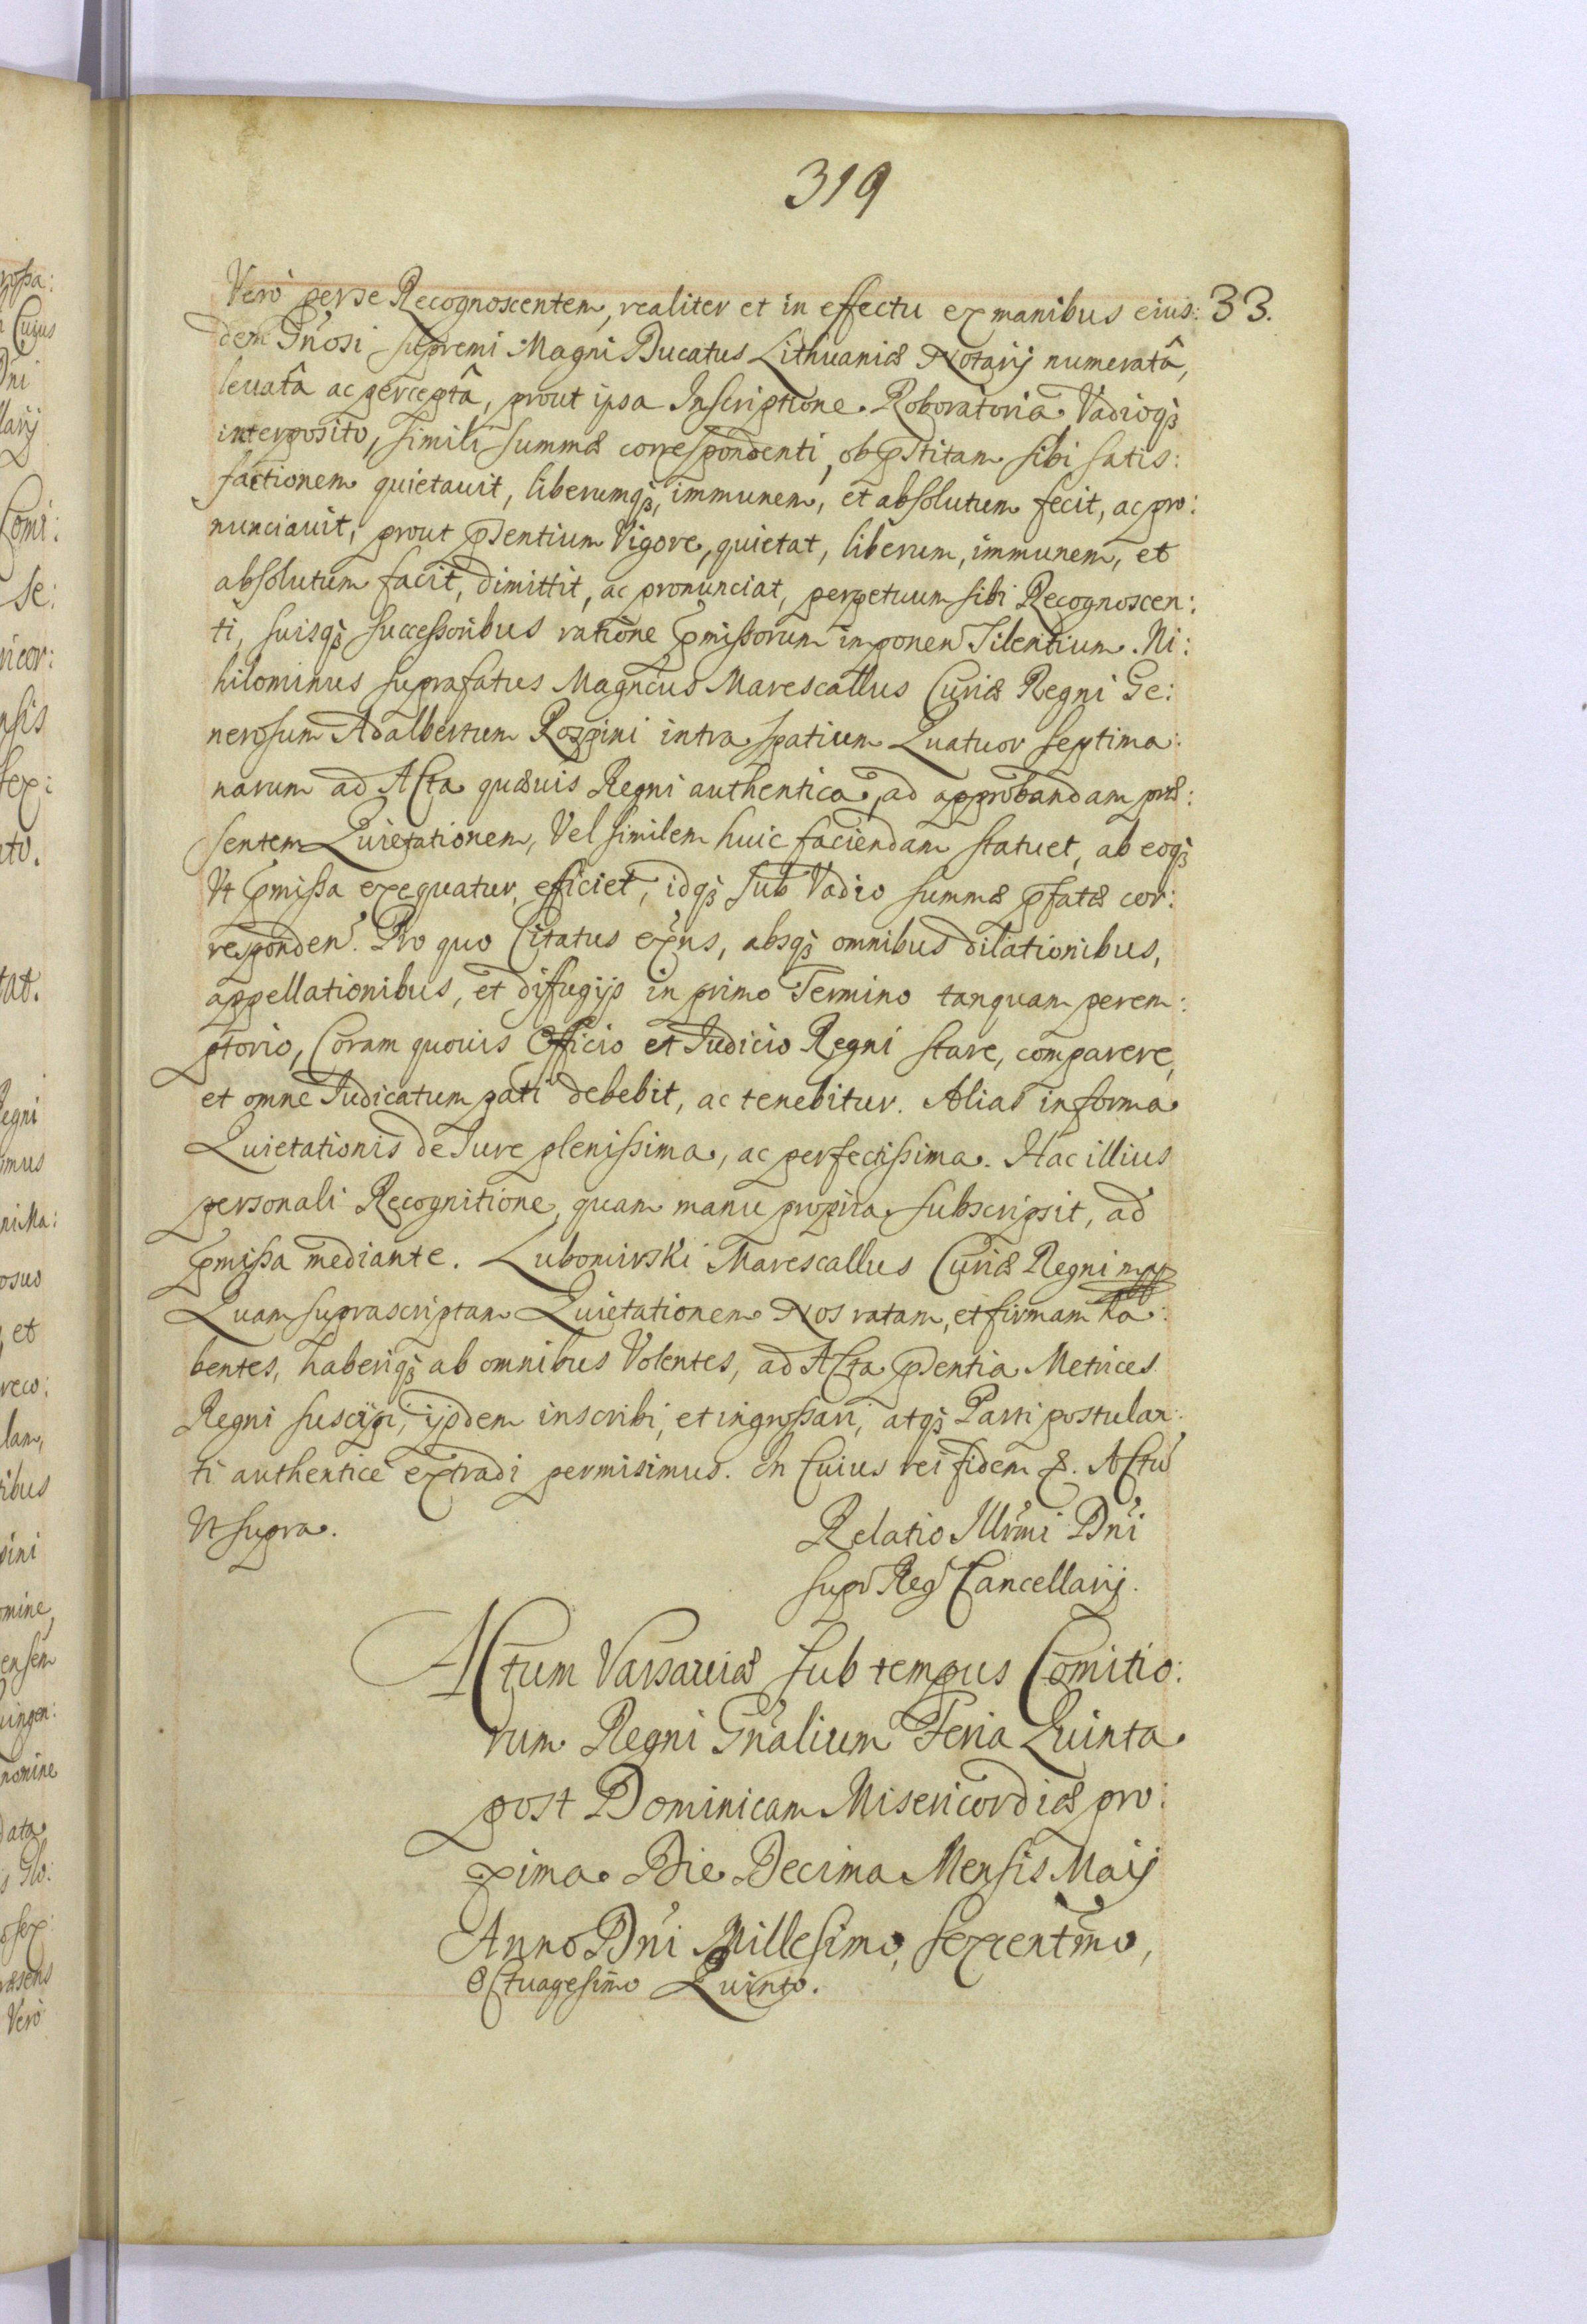 319
33.
Verò per se Recognoscentem, realiter et in effectu ex manibus eius:
dem Gnosi supremi Magni Ducatus Lithuaniæ Notarij numeratâ,
leuatâ ac perceptâ, prout ipsa Inscriptione Roboratoria Vadioq3
interposito, simili summæ correspondenti, ob pstitam sibi satis:
factionem quietauit, liberumq3, immunem, et absolutum fecit, ac pro:
nunciauit, prout psentium Vigore, quietat, liberum, immunem, et
absolutum facit, dimittit, ac pronunciat, perpetuum sibi Recognoscen:
ti, suisq3 successoribus ratione pmissorum imponen Silentium. Ni:
hilominus suprafatus Magncus Marescallus Curiæ Regni Ge:
nerosum Adalbertum Rospini intra spatium Quatuor septima:
narum ad Acta quæuis Regni authentica, ad approbandam præ:
sentem Quietationem, Vel similem huic faciendam statuet, ab eoq3
Vt pmissa exequatur, efficiet, idq3 sub Vadio summæ pfatæ cor:
responden. Pro quo Citatus exns, absq3 omnibus dilationibus,
appellationibus, et diffugijs in primo Termino tanquam perem:
ptorio, Coram quouis Officio et Judicio Regni stare, comparere,
et omne Judicatum pati debebit, ac tenebitur. Alias in forma
Quietationis de Jure plenissima, ac perfectissima. Hac illius
personali Recognitione, quam manu propria subscripsit, ad
pmissa mediante. Lubomirski Marescallus Curiæ Regni mpp
Quam suprascriptam Quietationem Nos ratam, et firmam ha:
bentes, haberiq3 ab omnibus Volentes, ad Acta psentia Metrices
Regni suscipi, ijsdem inscribi, et ingrossari, atq3 Parti postulan:
ti authenticè extradi permisimus. In Cuius rei fidem &. Actũ
Vt supra.
Relatio Illrmi Dni
supr Regn Cancellarij.
Actum Varsauiæ sub tempus Comitio:
rum Regni Gnalium Feria Quinta
post Dominicam Misericordiæ pro:
xima Die Decima Mensis Maij
Anno Dni Millesimo, sexcentmo,
Octuagesimo Quinto.